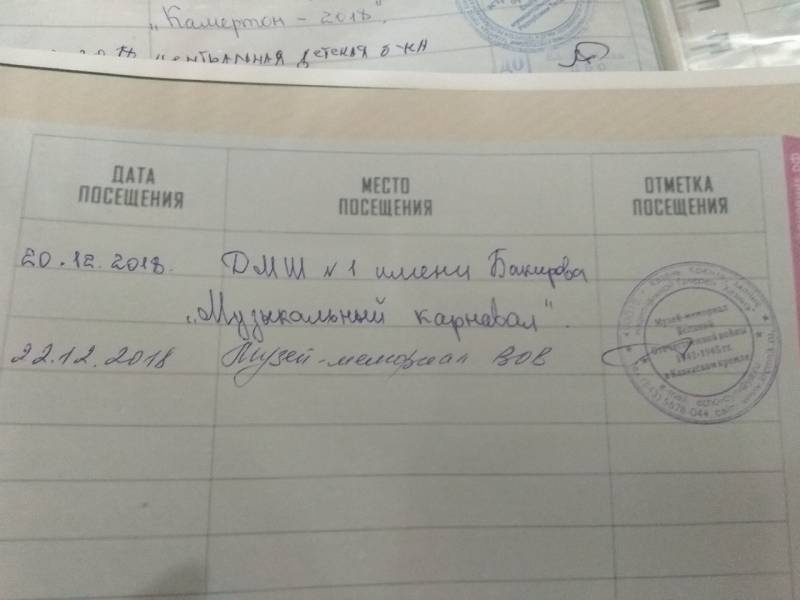 "Камертон - 2018".
центральная детская б-ка
ДАТА ПОСЕЩЕНИЯ
МЕСТО ПОСЕЩЕНИЯ
ОТМЕТКА ПОСЕЩЕНИЯ
20.12.2018. ДМШ №1 имени Бакирова
"Музыкальный карнавал".
22.12.2018 Музей-мемориал ВОВ
Музей-мемориал
Великой
Отечественной войны
1941-1945 гг.
в Казанском кремле